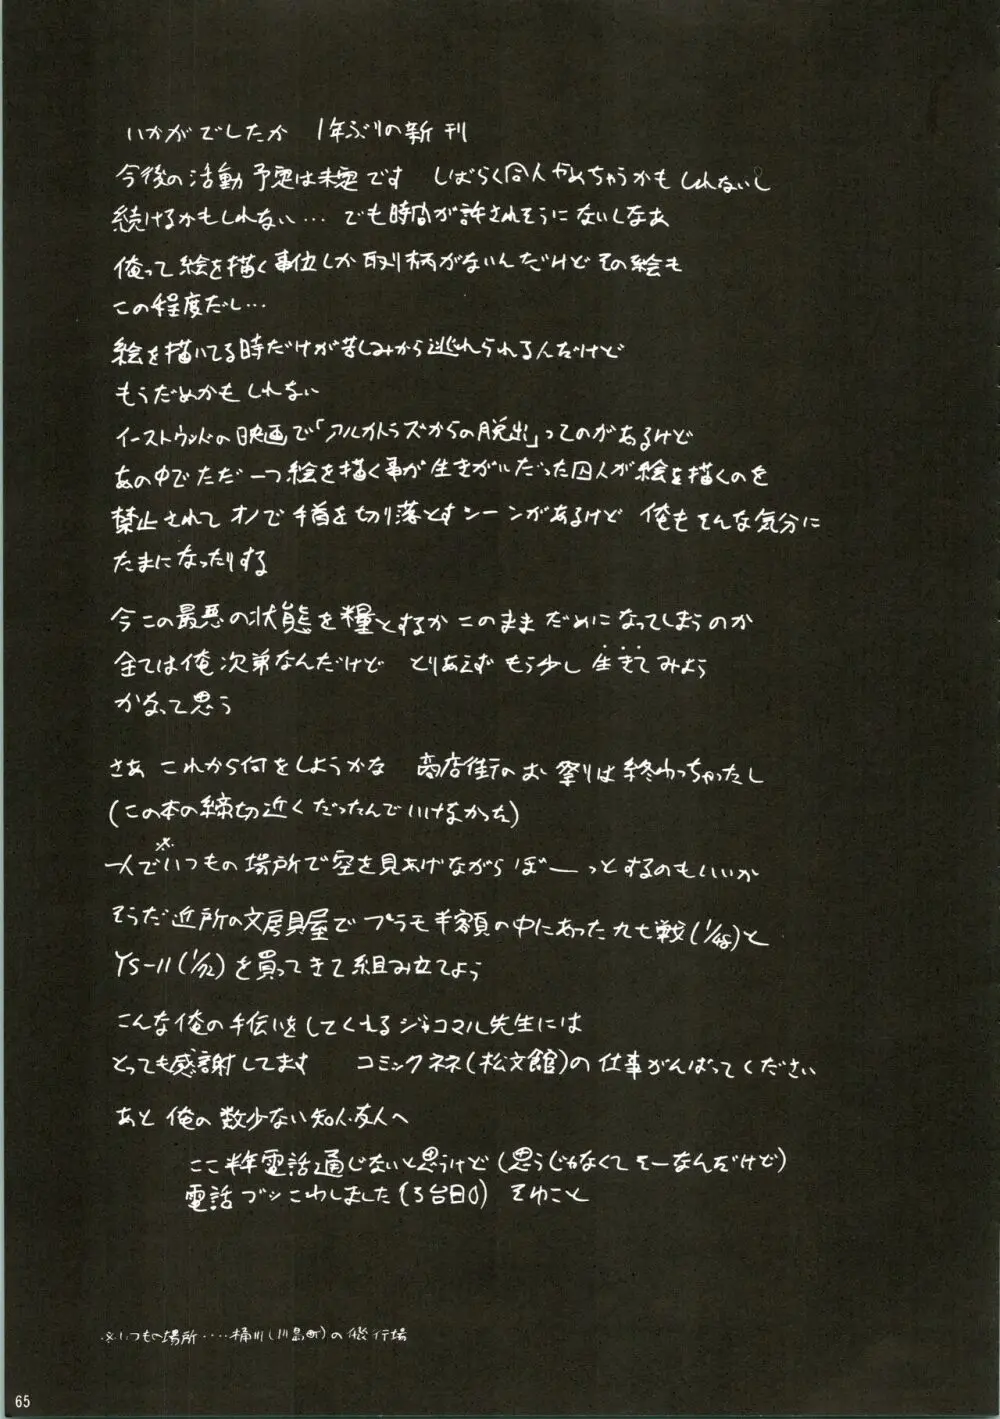 いかがでしたか　1年ぶりの新刊
今後の活動予定は未定です　しばらく同人やめちゃうかもしれないし
続けるかもしれない… でも時間が許されそうにないしなあ
俺って絵を描く事位しか取り柄がないんだけどその絵も
この程度だし…
絵を描いてる時だけが苦しみから逃れられる人だけど
もうだめかもしれない
イーストウッドの映画で「アルカトラズからの脱出」ってのがあるけど
あの中でただ一つ絵を描く事が生きがいだった囚人が絵を描くのを
禁止されてオノで手首を切り落とすシーンがあるけど 俺もそんな気分に
たまになったりする
今この最悪の状態を糧とするかこのままだめになってしまうのか
全ては俺次第なんだけど とりあえずもう少し生きてみよう
かなって思う
さあ これから何をしようかな　商店街のお祭りは終わっちゃったし
(この本の締切近くだったんでいけなかった)
一人で※いつもの場所で空を見あげながらぼーーっとするのもいいか
そうだ近所の文房具屋でプラモ半額の中にあった九七戦(1/48)と
YS-11(1/72)を買ってきて組み立てよう
こんな俺の手伝いをしてくれるジャコマル先生には
とっても感謝してます　コミックネネ(松文館)の仕事がんばってください
あと 俺の数少ない知人・友人へ
ここ半年電話通じないと思うけど(思うじゃなくてそーなんだけど)
電話ブッこわしました(3台目) そゆこと
※いつもの場所‥‥桶川(川島町)の飛行場
65